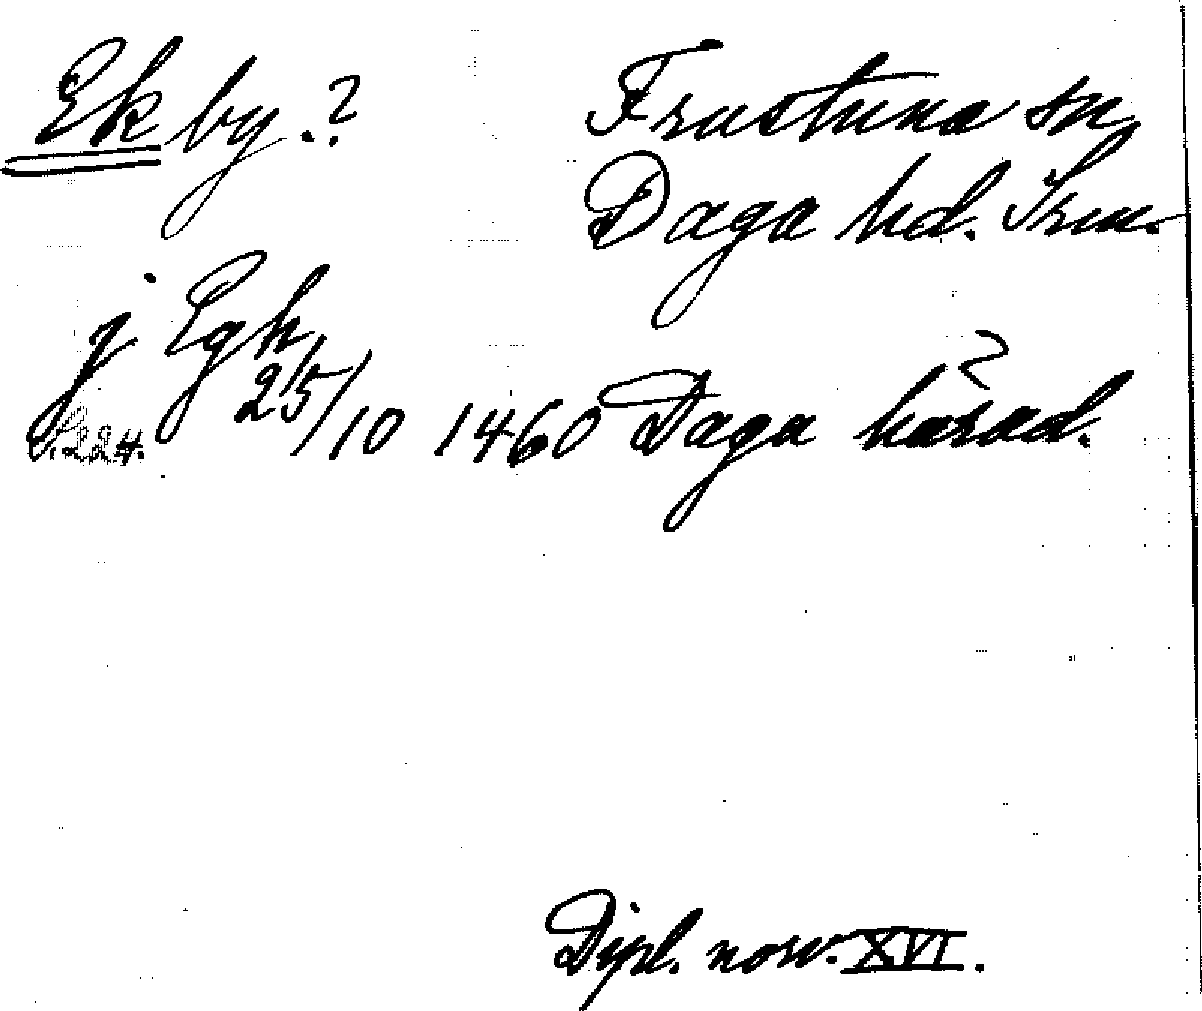 Ek by. ? Frustuna sn,
Daga hd. Srm.
j Egh
S. 224. 25/10 1460 Daga härad. ?
Dipl. norv. XVI.